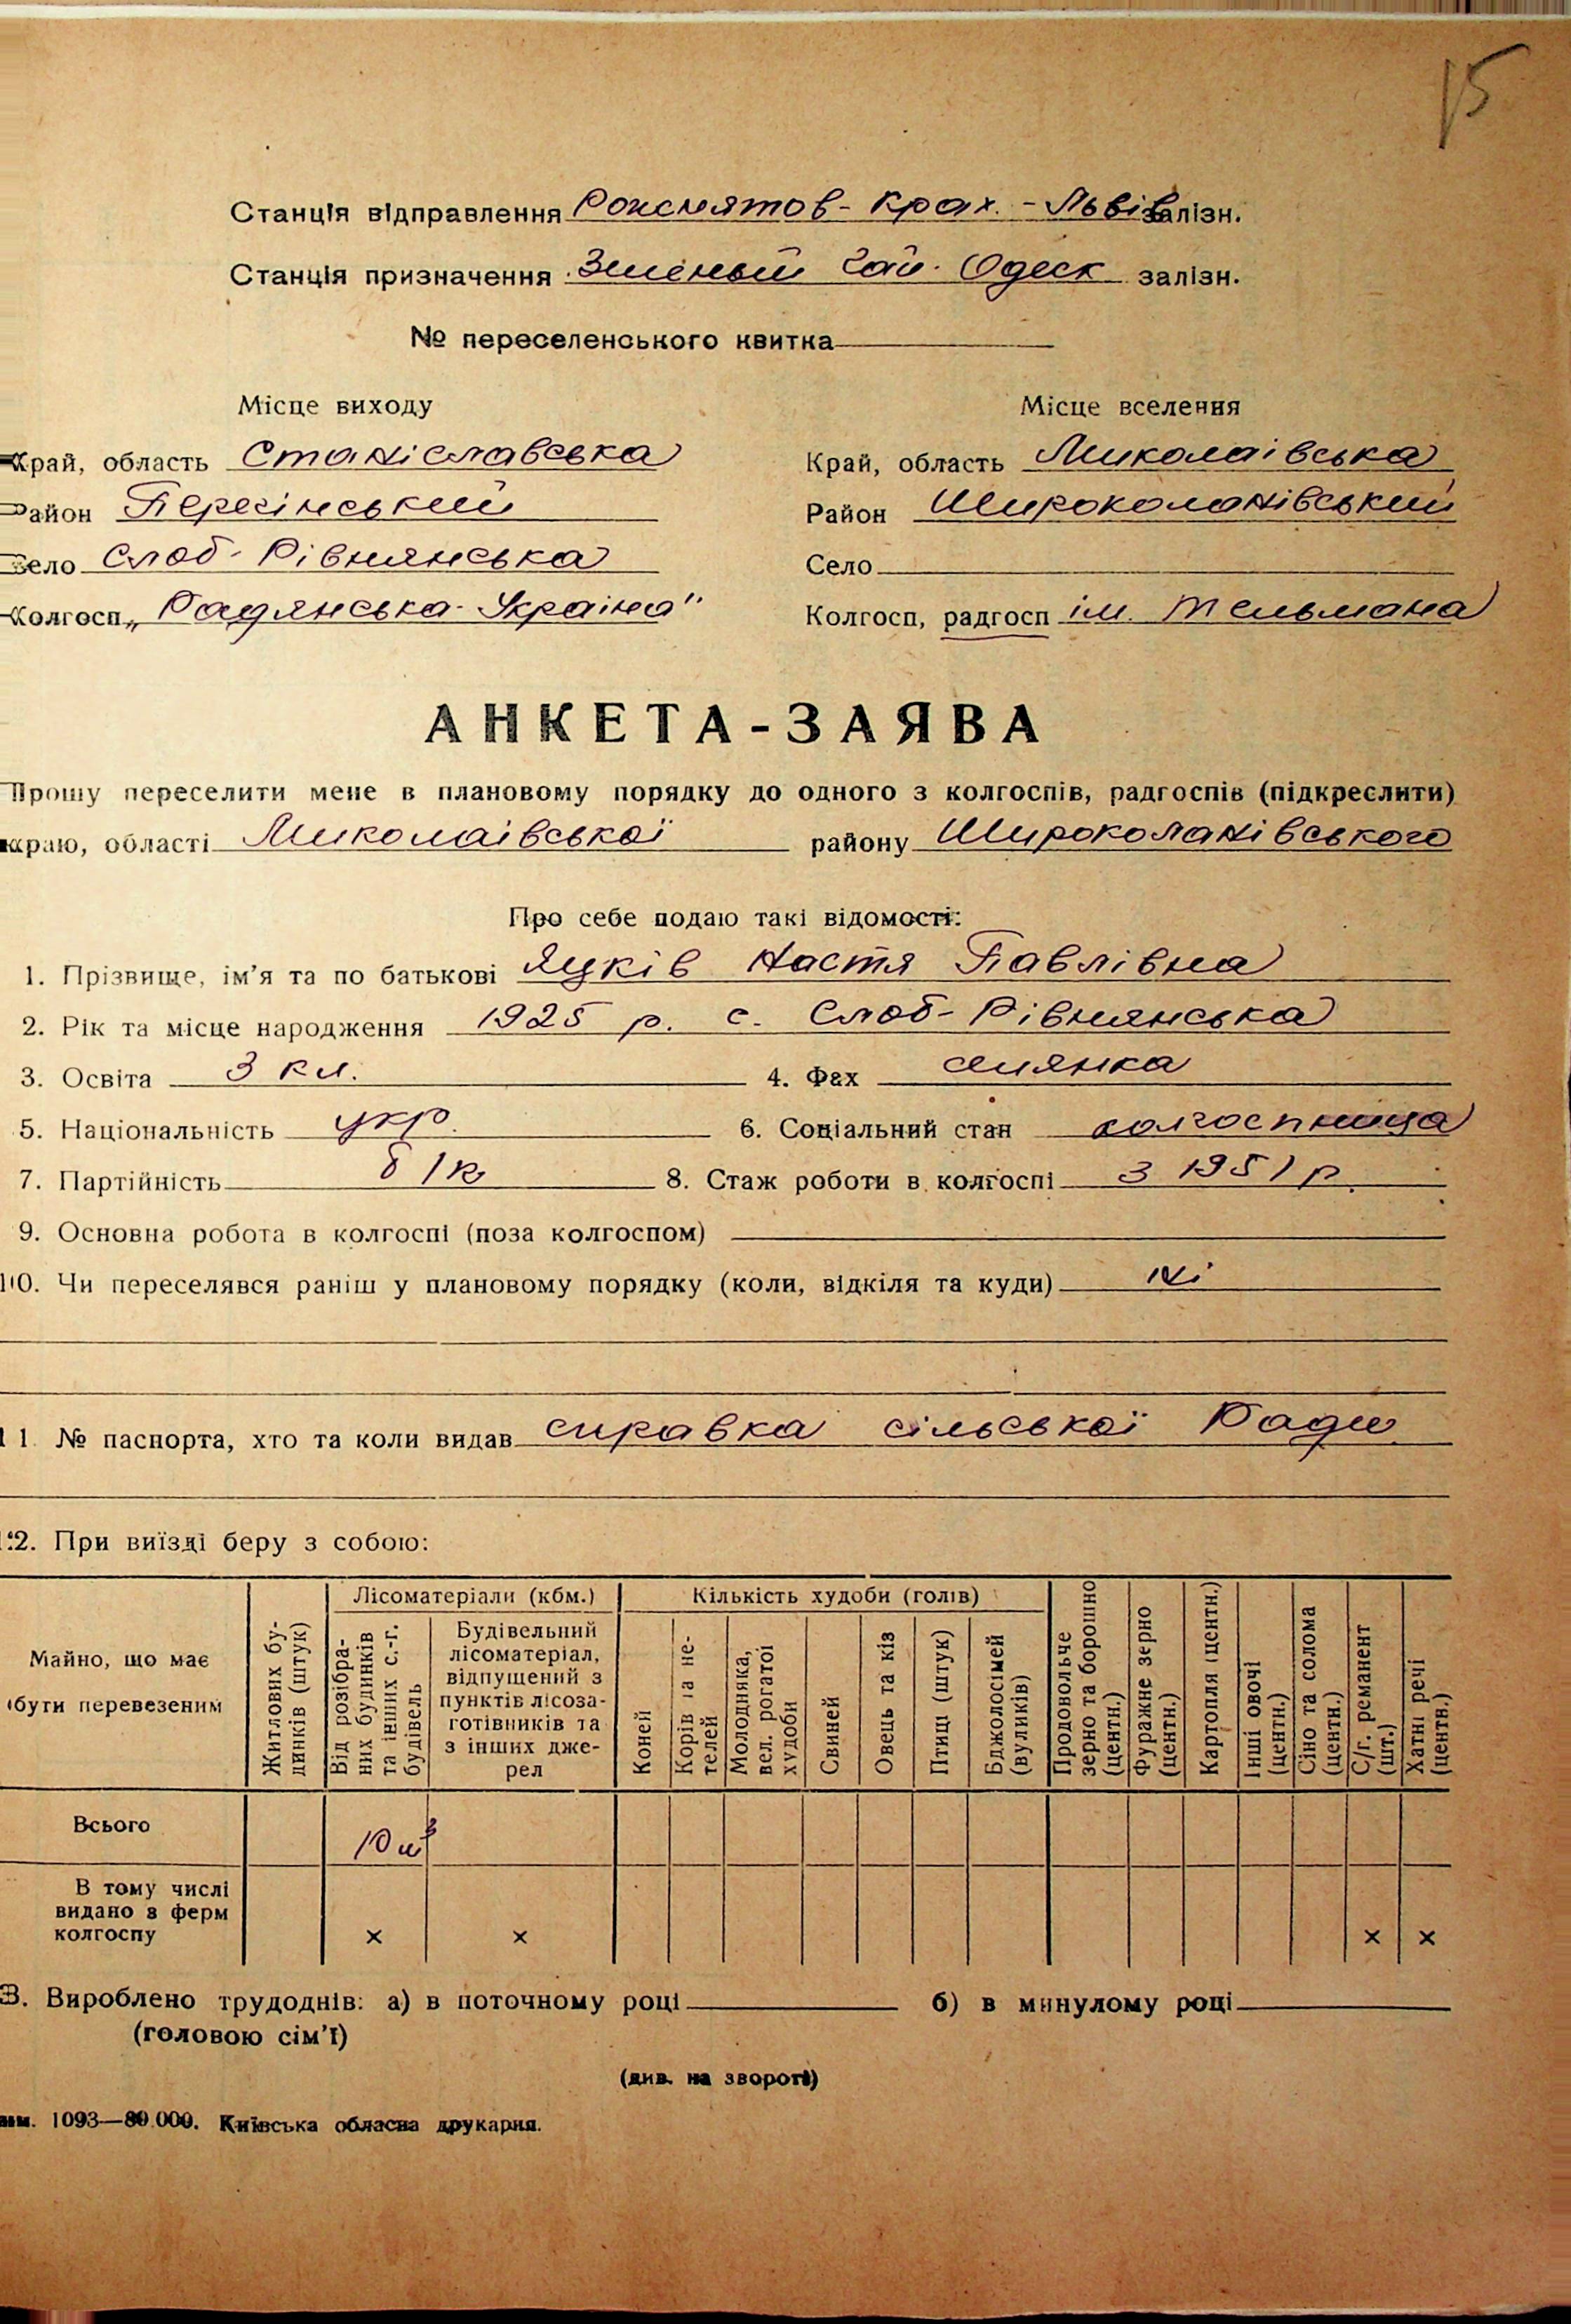 15
Станція відправлення Рожнятов-Крах.-Львів залізн.
Станція призначення Зеленый Гай. Одеск залізн.
№ переселенського квитка
Місце виходу Місце вселення
Край, область Станіславська Край, область Миколаівська
Район Перегінський Район Широколанівський
Село Слоб-Рівнянська Село
Колгосп „Радянська-Україна" Колгосп, радгосп ім. Тельмана
АНКЕТА-ЗАЯВА
Прошу переселити мене в плановому порядку до одного з колгоспів, радгоспів (підкреслити)
краю, області Миколаівської району Широколанівського
Про себе подаю такі відомості:
1. Прізвище, ім'я та по батькові Яцків Настя Павлівна
2. Рік та місце народження 1925 р. с. Слоб-Рівнянська
3. Освіта 3 кл. 4. Фах селянка
5. Національність укр. 6. Соціальний стан колгоспниця
7. Партійність б/п 8. Стаж роботи в колгоспі з 1951 р.
9. Основна робота в колгоспі (поза колгоспом)
10. Чи переселявся раніш у плановому порядку (коли, відкіля та куди) ні
11. № паспорта, хто та коли видав справка сільської Ради
12. При виїзді беру з собою:
Майно, що має бути перевезеним
Житлових будинків (штук)
Лісоматеріали (кбм.)
Від розібраних будинків та інших с.-г. будівель
Будівельний лісоматеріал, відпущений з пунктів лісозаготівників та з інших джерел
Кількість худоби (голів)
Коней
Корів та нетелей
Молодняка, вел. рогатої худоби
Свиней
Овець та кіз
Птиці (штук)
Бджолосімей (вуликів)
Продовольче зерно та борошно (центн.)
Фуражне зерно (центн.)
Картопля (центн.)
Інші овочі (центн.)
Сіно та солома (центн.)
С/г. реманент (шт.)
Хатні речі (центн.)
Всього 10 м³
В тому числі видано з ферм колгоспу × × × ×
3. Вироблено трудоднів: а) в поточному році б) в минулому році
(головою сім'ї)
(див. на звороті)
зам. 1093—80.000. Київська обласна друкарня.